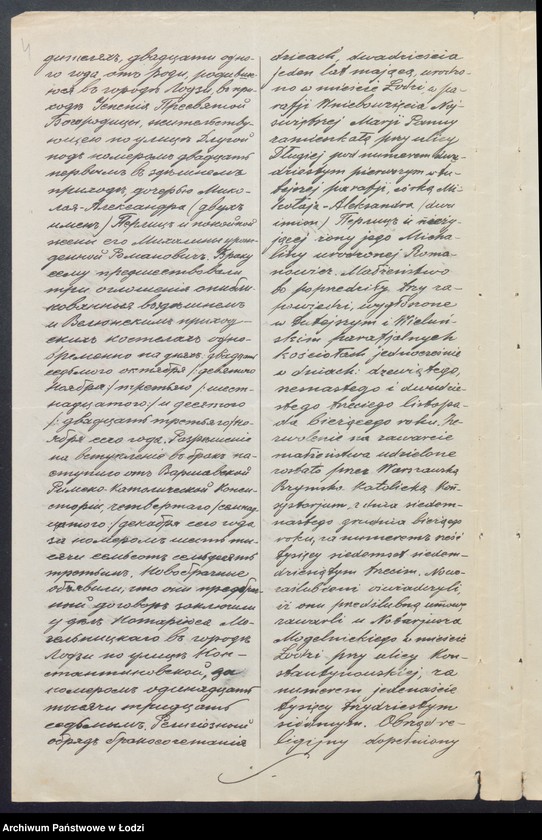 дителяхъ, двадцати одно-
го года отъ роду, родившу-
юся въ городѣ Лодзи, въ при-
ходѣ Успенія Пресвятой
Богородицы, жительству-
ющею по улицѣ Длугой
подъ номеромъ двадцать
первымъ въ здѣшнемъ
приходѣ, дочерью Мико-
лая-Александра /двухъ
именъ/ Перлицъ и покойной
жены его Михалины урож-
денной Романовичъ. Браку
сему предшествовали
три оглашенія опубли-
кованныя въ здѣшнемъ
и Велюнскимъ приход-
скихъ костелахъ одно-
временно на дняхъ: двадцать
седьмого октября /: девятаго
Ноября:/ третьяго /: шест-
надцатаго:/ и десятаго
/: двадцать третьяго/ Но-
ября сего года. Разрѣшеніе
на вступленіе въ бракъ на-
ступило отъ Варшавской
Римско Католической Конси-
сторіи, четвертаго /: семнад-
цатаго:/ декабря сего года
за номеромъ шесть ты-
сячъ семьсотъ семьдесятъ
третьимъ. Новобрачные
объявили, что они предбрач-
ный договоръ заключили
у дѣлъ Нотаріуса Мо-
гельницкаго въ городѣ
Лодзи по улицѣ Кон-
стантиновской, за
номеромъ одинадцать
тысячъ тридцать
седьмымъ. Религіозный
обрядъ бракосочетанія
dzicach, dwadzieścia
jeden lat mającą, urodzo-
no w mieście Łodzi w pa-
rafji Wniebowzięcia Naj-
świętszej Marji Panny
zamieszkałą przy ulicy
Długiej pod numerem dwu-
dziestym pierwszym w tu-
tejszej parafji, córką Mi-
kołaja-Aleksandra /dwu
imion/ Perlicz i nieżyj-
jącej żony jego Micha-
liny urodzonej Roma-
nowicz. Małżeństwo
to poprzedziły trzy za-
powiedzi, wygłoszone
w tutejszym i Wieluń-
skim parafjalnych
kościołach jednocześnie
w dniach: dziewiątego,
szesnastego i dwudzie-
stego trzeciego listopa-
da bieżącego roku. Ze-
zwolenie na zawarcie
małżeństwa udzielone
zostało przez Warszawską
Rzymsko Katolicką Kon-
systorjum, z dnia siedem-
nastego grudnia bieżącego
roku, za numerem sześć
tysięcy siedemset siedem-
dziesiątym trzecim. Nowo-
zaślubieni oświadczyli,
iż oni przedślubną umowę
zawarli u Notarjusza
Mogelnickiego w mieście
Łodzi przy ulicy Kon-
stantynowskiej, za
numerem jedenaście
tysięcy trzydziestym
siódmym. Obrząd re-
ligijny dopełniony
Archiwum Państwowe w Łodzi